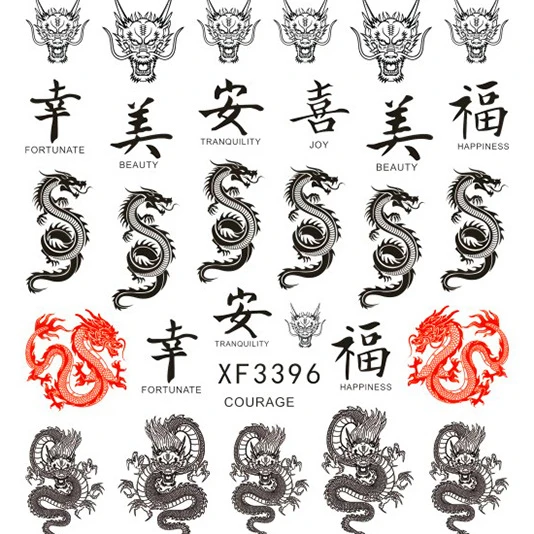 幸
FORTUNATE
美
BEAUTY
安
TRANQUILITY
喜
JOY
美
BEAUTY
福
HAPPINESS
幸
FORTUNATE
安
TRANQUILITY
XF3396
COURAGE
福
HAPPINESS